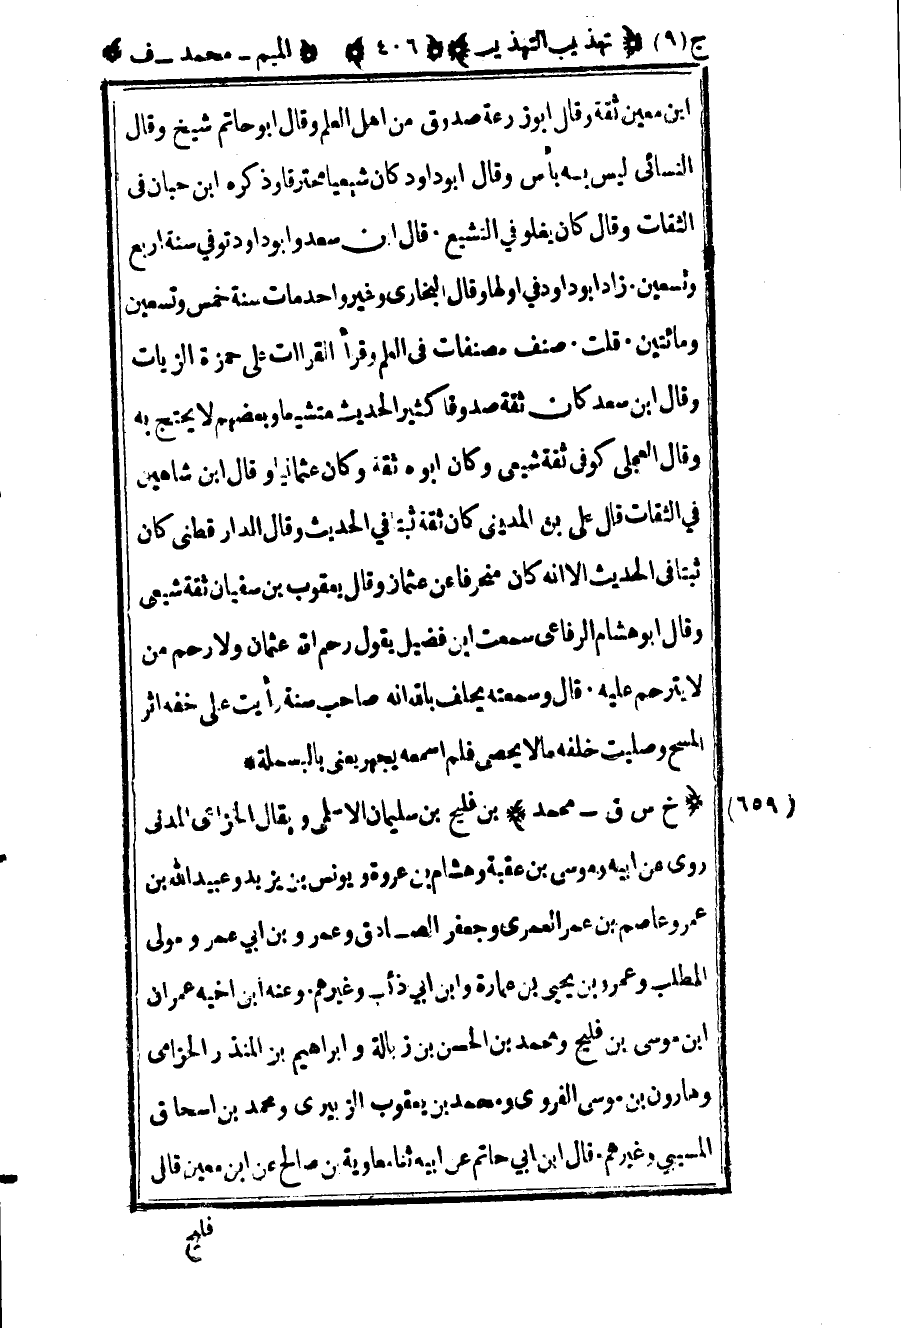 ج(٩) ﴿ تهذيب التهذيب ﴾ ﴿ ٤٠٦ ﴾ ﴿ الميم - محمد - ف ﴾
ابن معين ثقة وقال ابوزرعة صدوق من اهل العلم وقال ابوحاتم شيخ وقال
النسائى ليس به بأس وقال ابوداود كان شيعيا محترقا وذكره ابن حبان فى
الثقات وقال كان يغلو في التشيع ٠ قال ابن سعد وابوداود توفي سنة اربع
وتسعين ٠ زاد ابوداود في اولها وقال البخارى وغير واحد مات سنة خمس وتسعين
ومائتين ٠ قلت ٠ صنف مصنفات فى العلم وقرأ القراات على حمزة الزيات
وقال ابن سعد كان ثقة صدوقا كثير الحديث متشيعا وبعضهم لا يحتج به
وقال العجلى كوفى ثقة شيعى وكان ابوه ثقة وكان عثمانيا وقال ابن شاهين
في الثقات قال على بن المدينى كان ثقة ثبتا في الحديث وقال الدار قطنى كان
ثبتا فى الحديث الا انه كان منحرفا عن عثمان وقال يعقوب بن سفيان ثقة شيعى
وقال ابوهشام الرفاعى سمعت ابن فضيل يقول رحم الله عثمان ولا رحم من
لا يترحم عليه ٠ قال وسمعته يحلف بالله انه صاحب سنة رأيت على خفه اثر
المسح وصليت خلفه مالا يحصى فلم اسمعه يجهر يعنى بالبسملة *
﴿ خ س ق - محمد ﴾ بن فليح بن سليمان الاسلمى ويقال الخزاعى المدنى (٦٥٩)
روى عن ابيه وموسى بن عقبة وهشام بن عروة ويونس بن يزيد وعبيدالله بن
عمر وعاصم بن عمر العمرى وجعفر الصادق وعمرو بن ابي عمرو مولى
المطلب وعمرو بن يحيى بن عمارة وابن ابي ذئب وغيرهم ٠ وعنه ابن اخيه عمران
ابن موسى بن فليح ومحمد بن الحسن بن زبالة وابراهيم بن المنذر الحزامى
وهارون بن موسى الفروى ومحمد بن يعقوب الزبيرى ومحمد بن اسحاق
المسيبي وغيرهم ٠ قال ابن ابي حاتم عن ابيه ثنا معاوية بن صالح عن ابن معين قال
فليح